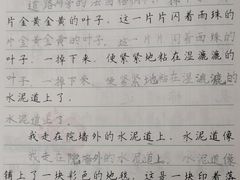 片金黄金黄的叶子，这一片片闪着雨珠的
片金黄金黄的叶子，这一片片闪着雨珠的
叶子，一掉下来，便紧紧地粘在湿漉漉的
叶子，一掉下来，便紧紧地粘在湿漉漉的
水泥道上了。
水泥道上了。
我走在院墙外的水泥道上，水泥道像
我走在院墙外的水泥道上，水泥道像
铺上了一块彩色的地毯，这是一块印着落